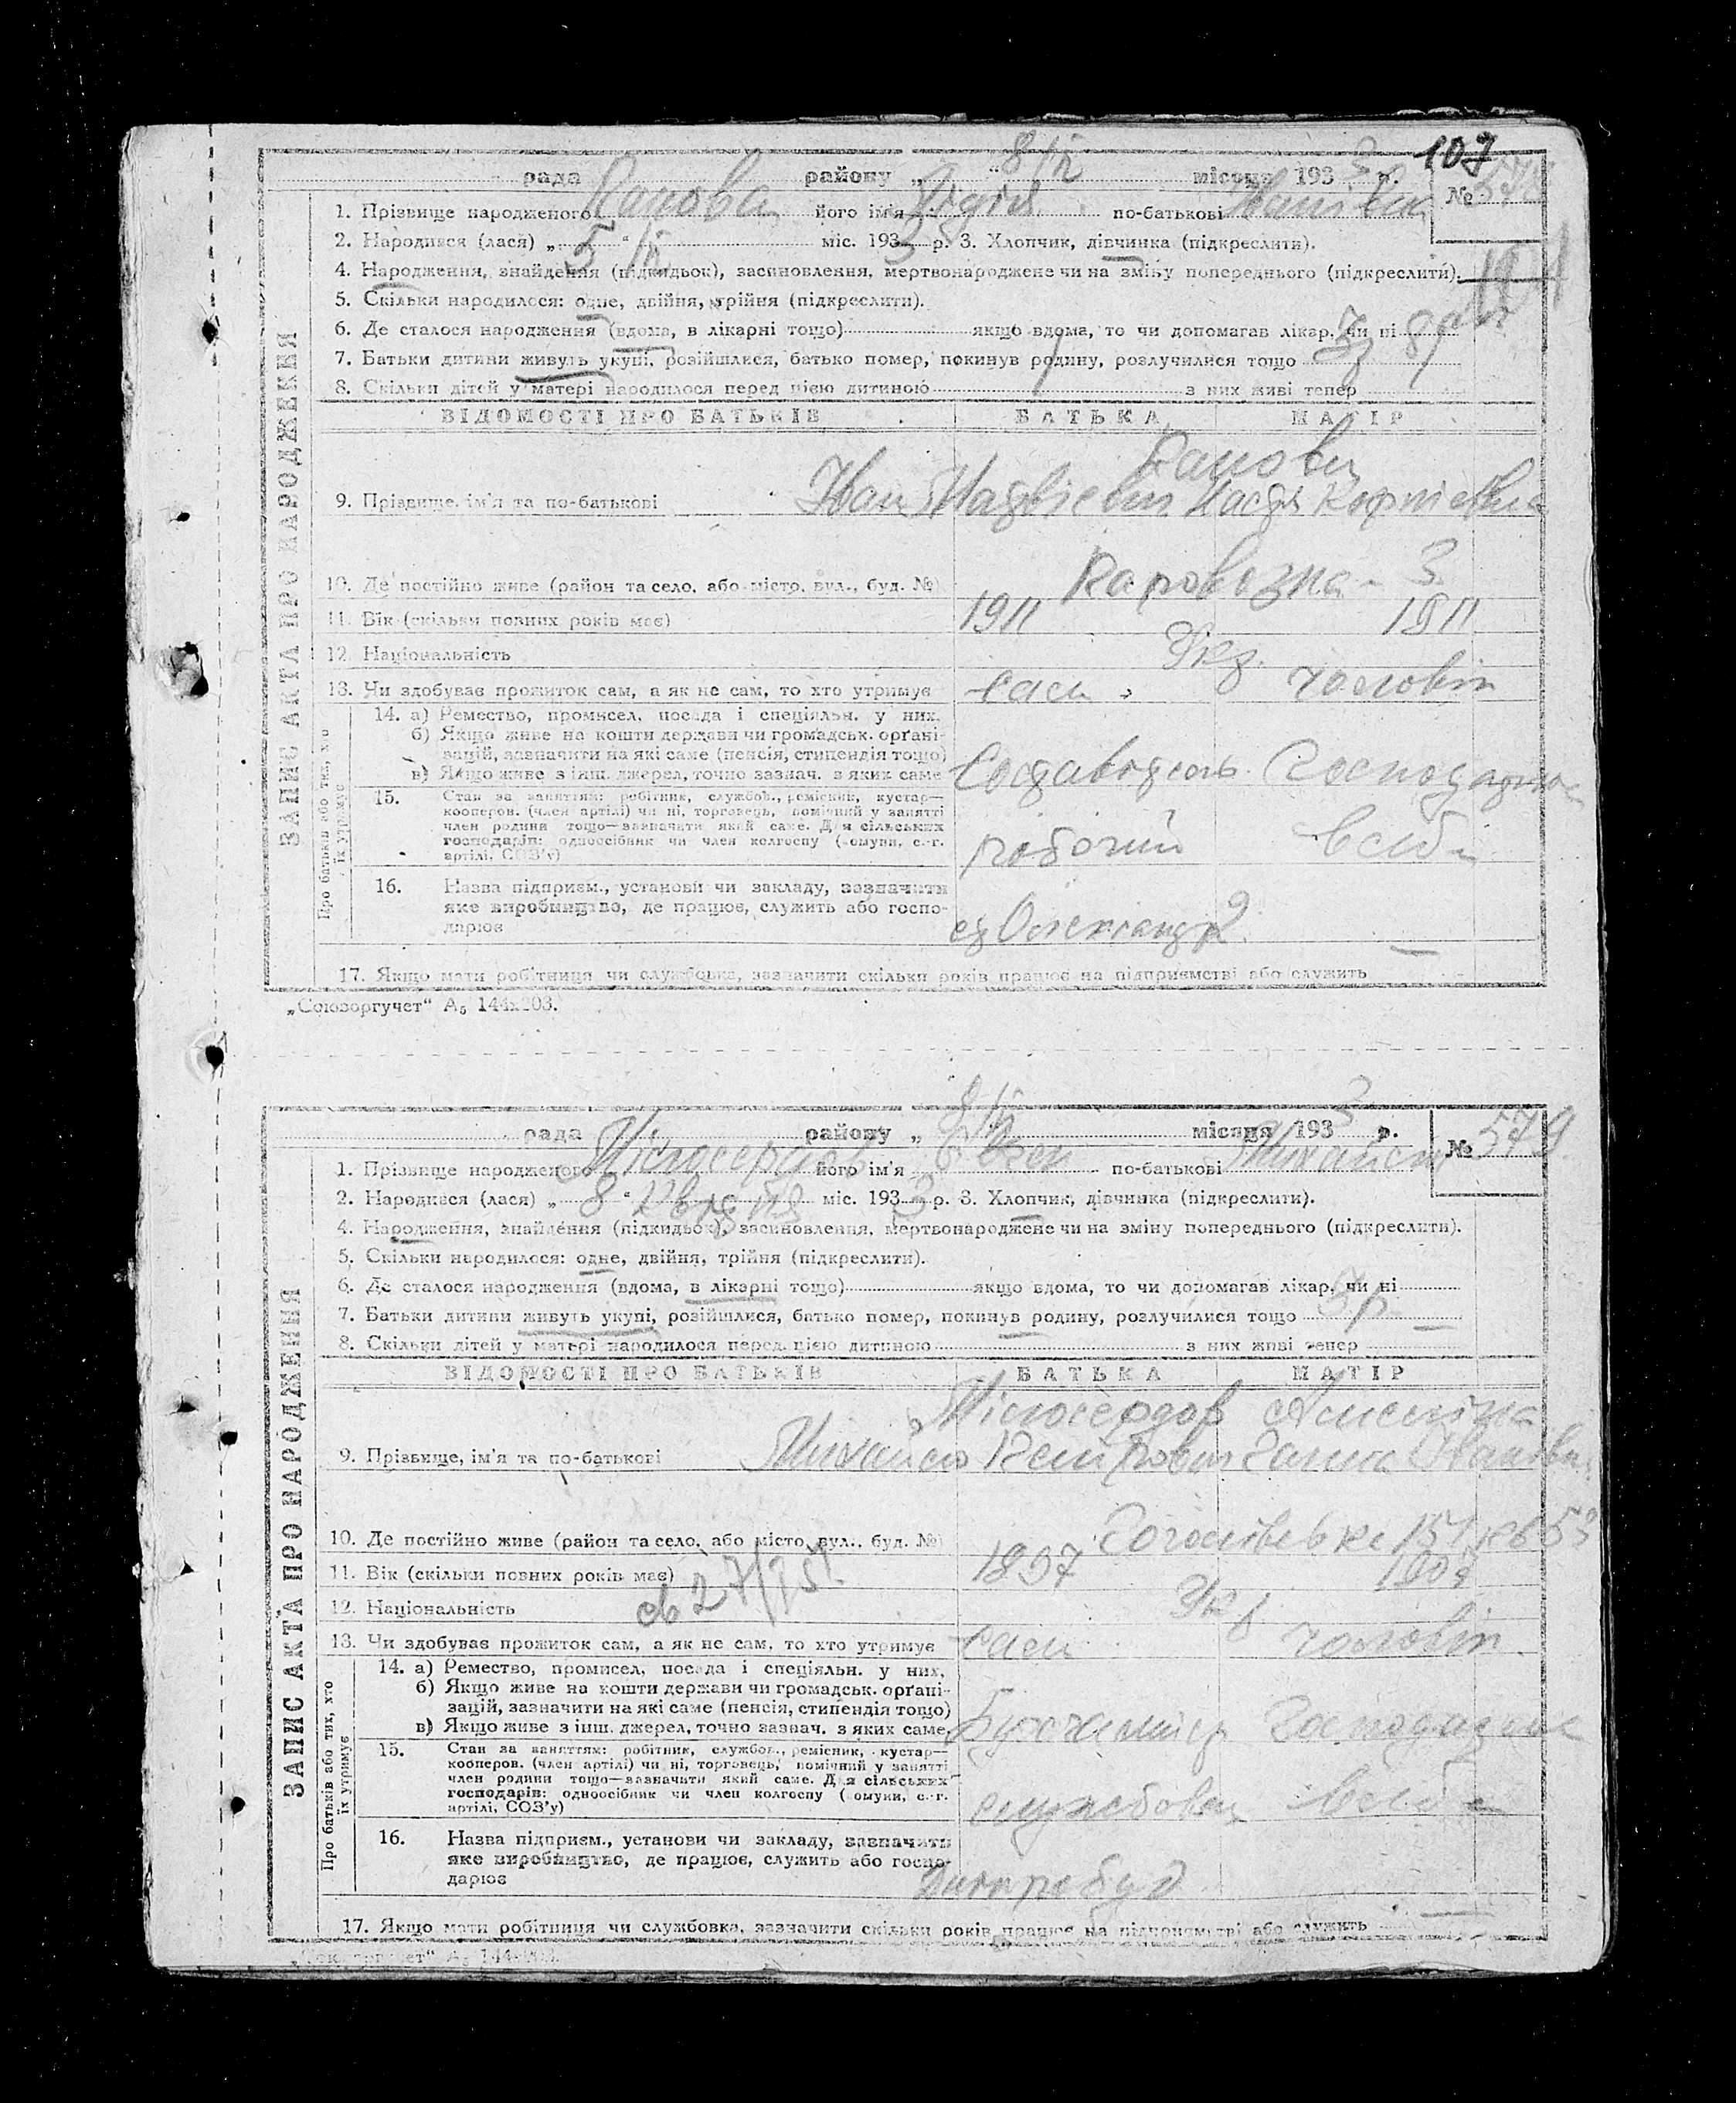 107
8/IV 3
рада району „ “ місяця 193 р.
№ 578
1. Прізвище народженого його ім'я Лідія по-батькові Іванівна
2. Народився (лася) „ 5 “ міс. 1933 р. 3. Хлопчик, дівчинка (підкреслити).
4. Народження, знайдення (підкидьок), засиновлення, мертвонароджене чи на зміну попереднього (підкреслити).
5. Скільки народилося: одне, двійня, трійня (підкреслити).
6. Де сталося народження (вдома, в лікарні тощо) якщо вдома, то чи допомагав лікар, чи ні
7. Батьки дитини живуть укупі, розійшлися, батько помер, покинув родину, розлучилися тощо
8. Скільки дітей у матері народилося перед цією дитиною з них живі тепер
ЗАПИС АКТА ПРО НАРОДЖЕННЯ
ВІДОМОСТІ ПРО БАТЬКІВ БАТЬКА МАТІР
9. Прізвище, ім'я та по-батькові Іван Настя
10. Де постійно живе (район та село, або місто, вул., буд. №) 3
11. Вік (скільки повних років має) 1911 1911
12. Національність Укр.
13. Чи здобуває прожиток сам, а як не сам, то хто утримує сам чоловік
Про батьків або тих, хто їх утримує
14. а) Ремество, промисел, посада і спеціяльн. у них.
б) Якщо живе на кошти держави чи громадськ. орґані-
зацій, зазначити на які саме (пенсія, стипендія тощо)
в) Якщо живе з інш. джерел, точно зазнач. з яких саме
15. Стан за заняттям: робітник, службов., ремісник, кустар—
кооперов. (член артілі) чи ні, торговець, помічний у занятті
член родини тощо—зазначити який саме. Для сільських
господарів: одноосібник чи член колгоспу (комуни, с.-г.
артілі, СОЗ'у)
робочий
16. Назва підприєм., установи чи закладу, зазначити
яке виробництво, де працює, служить або госпо-
дарює
17. Якщо мати робітниця чи службовка, зазначити скільки років працює на підприємстві або служить
„Союзоргучет“ А5 144х203.
8/IV 3
рада району „ “ місяця 193 р.
№ 579.
1. Прізвище народженого його ім'я по-батькові
2. Народився (лася) „ 8 “ квітня міс. 1933 р. 3. Хлопчик, дівчинка (підкреслити).
4. Народження, знайдення (підкидьок), засиновлення, мертвонароджене чи на зміну попереднього (підкреслити).
5. Скільки народилося: одне, двійня, трійня (підкреслити).
6. Де сталося народження (вдома, в лікарні тощо) якщо вдома, то чи допомагав лікар, чи ні
7. Батьки дитини живуть укупі, розійшлися, батько помер, покинув родину, розлучилися тощо
8. Скільки дітей у матері народилося перед цією дитиною з них живі тепер
ЗАПИС АКТА ПРО НАРОДЖЕННЯ
ВІДОМОСТІ ПРО БАТЬКІВ БАТЬКА МАТІР
Мілосердов
9. Прізвище, ім'я та по-батькові Михайло Галина
10. Де постійно живе (район та село, або місто, вул., буд. №) Гоголівська 151 кв 53
11. Вік (скільки повних років має) 1897
12. Національність Укр
13. Чи здобуває прожиток сам, а як не сам, то хто утримує сам чоловік
Про батьків або тих, хто їх утримує
14. а) Ремество, промисел, посада і спеціяльн. у них.
б) Якщо живе на кошти держави чи громадськ. орґані-
зацій, зазначити на які саме (пенсія, стипендія тощо)
в) Якщо живе з інш. джерел, точно зазнач. з яких саме.
Бухгалтер
15. Стан за заняттям: робітник, службов., ремісник, кустар—
кооперов. (член артілі) чи ні, торговець, помічний у занятті
член родини тощо—зазначити який саме. Для сільських
господарів: одноосібник чи член колгоспу (комуни, с.-г.
артілі, СОЗ'у)
службовец
16. Назва підприєм., установи чи закладу, зазначити
яке виробництво, де працює, служить або госпо-
дарює
17. Якщо мати робітниця чи службовка, зазначити скільки років працює на підприємстві або служить
„Союзоргучет“ А5 144х203.